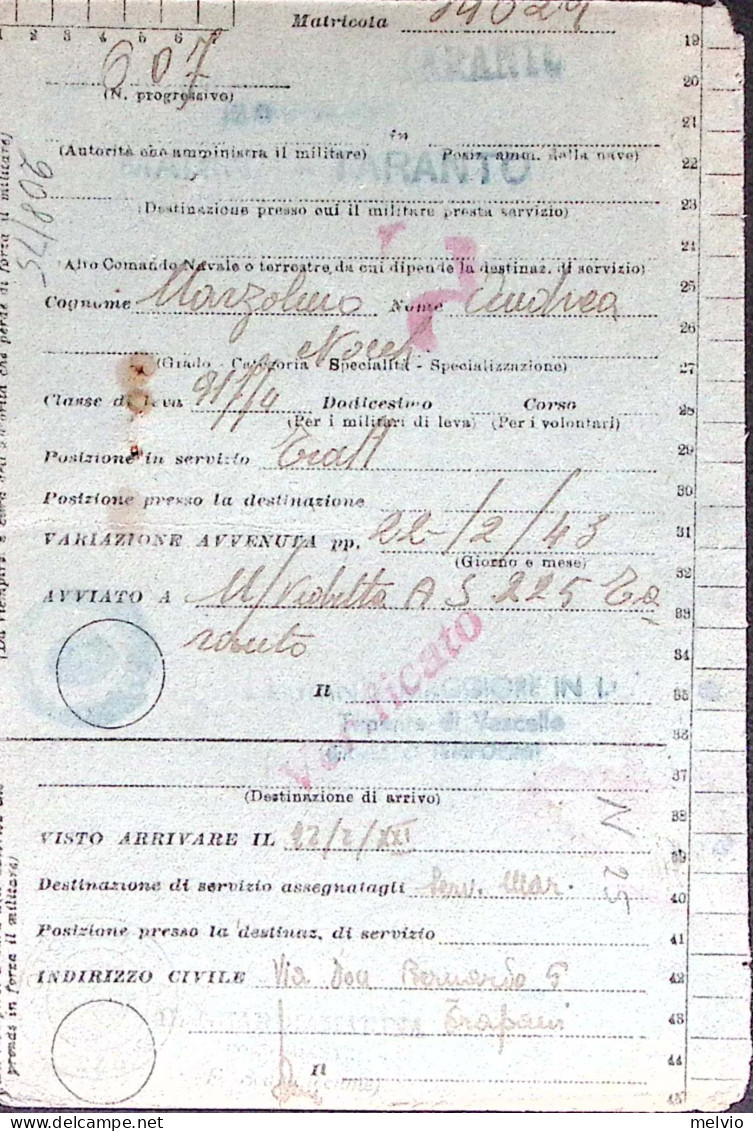 1 2 3 4 5 6 7
Matricola 14024
607
(N. progressivo)
in
(Autorità che amministra il militare) (Posiz. amm. della nave)
TARANTO
(Destinazione presso cui il militare presta servizio)
(Alto Comando Navale o terrestre da cui dipende la destinaz. di servizio)
Cognome Nome Andrea
(Grado - Categoria - Specialità - Specializzazione)
Classe di leva Dodicesimo Corso
(Per i militari di leva) (Per i volontari)
Posizione in servizio
Posizione presso la destinazione
VARIAZIONE AVVENUTA pp. 22-/2/43
(Giorno e mese)
AVVIATO A M/Vedetta A S 225 Ta
ranto
Verificato
Il MAGGIORE IN
Tenente di Vascello
(Destinazione di arrivo)
VISTO ARRIVARE IL 22/2/XXI
N 25
Destinazione di servizio assegnatagli Serv. Mar.
Posizione presso la destinaz. di servizio
INDIRIZZO CIVILE Via Don Bernardo 5
Trapani
Il
(firma)
19
20
21
22
23
24
25
26
27
28
29
30
31
32
33
34
35
36
37
38
39
40
41
42
43
44
45
prende in forza il militare)
melvio